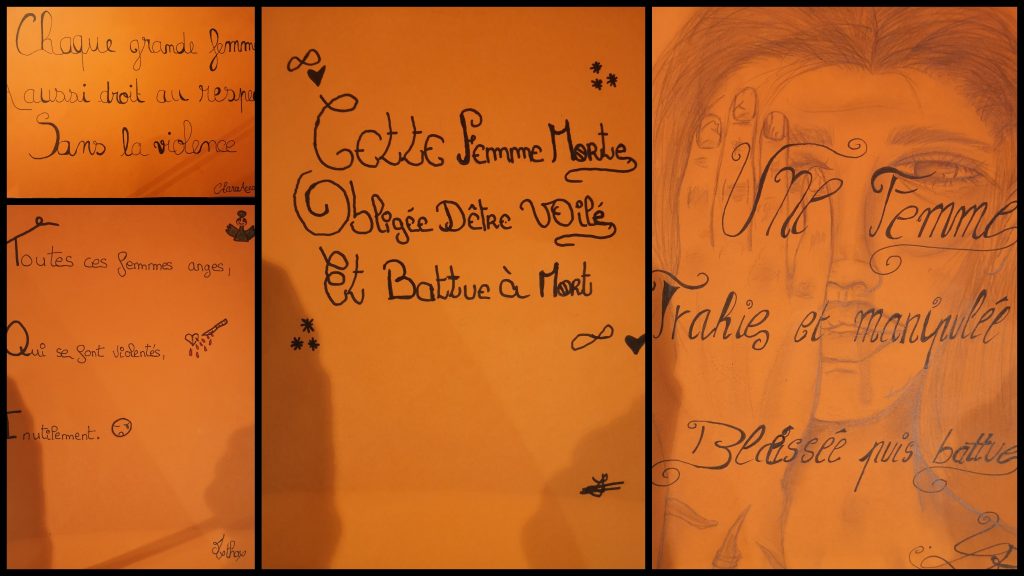 Chaque grande femm
aussi droit au respe
Sans la violence
Toutes ces femmes anges,
Qui se font violentés,
Inutilement.
Cette Femme Morte
Obligée Dêtre Voilé
Et Battue à Mort
Une Femme
Trahie et manipulée
Blessée puis battue